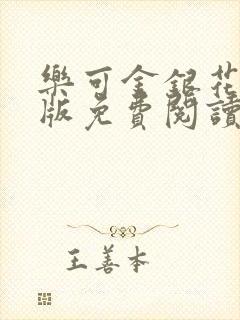 樂可金銀花
版免費閱讀
王善本